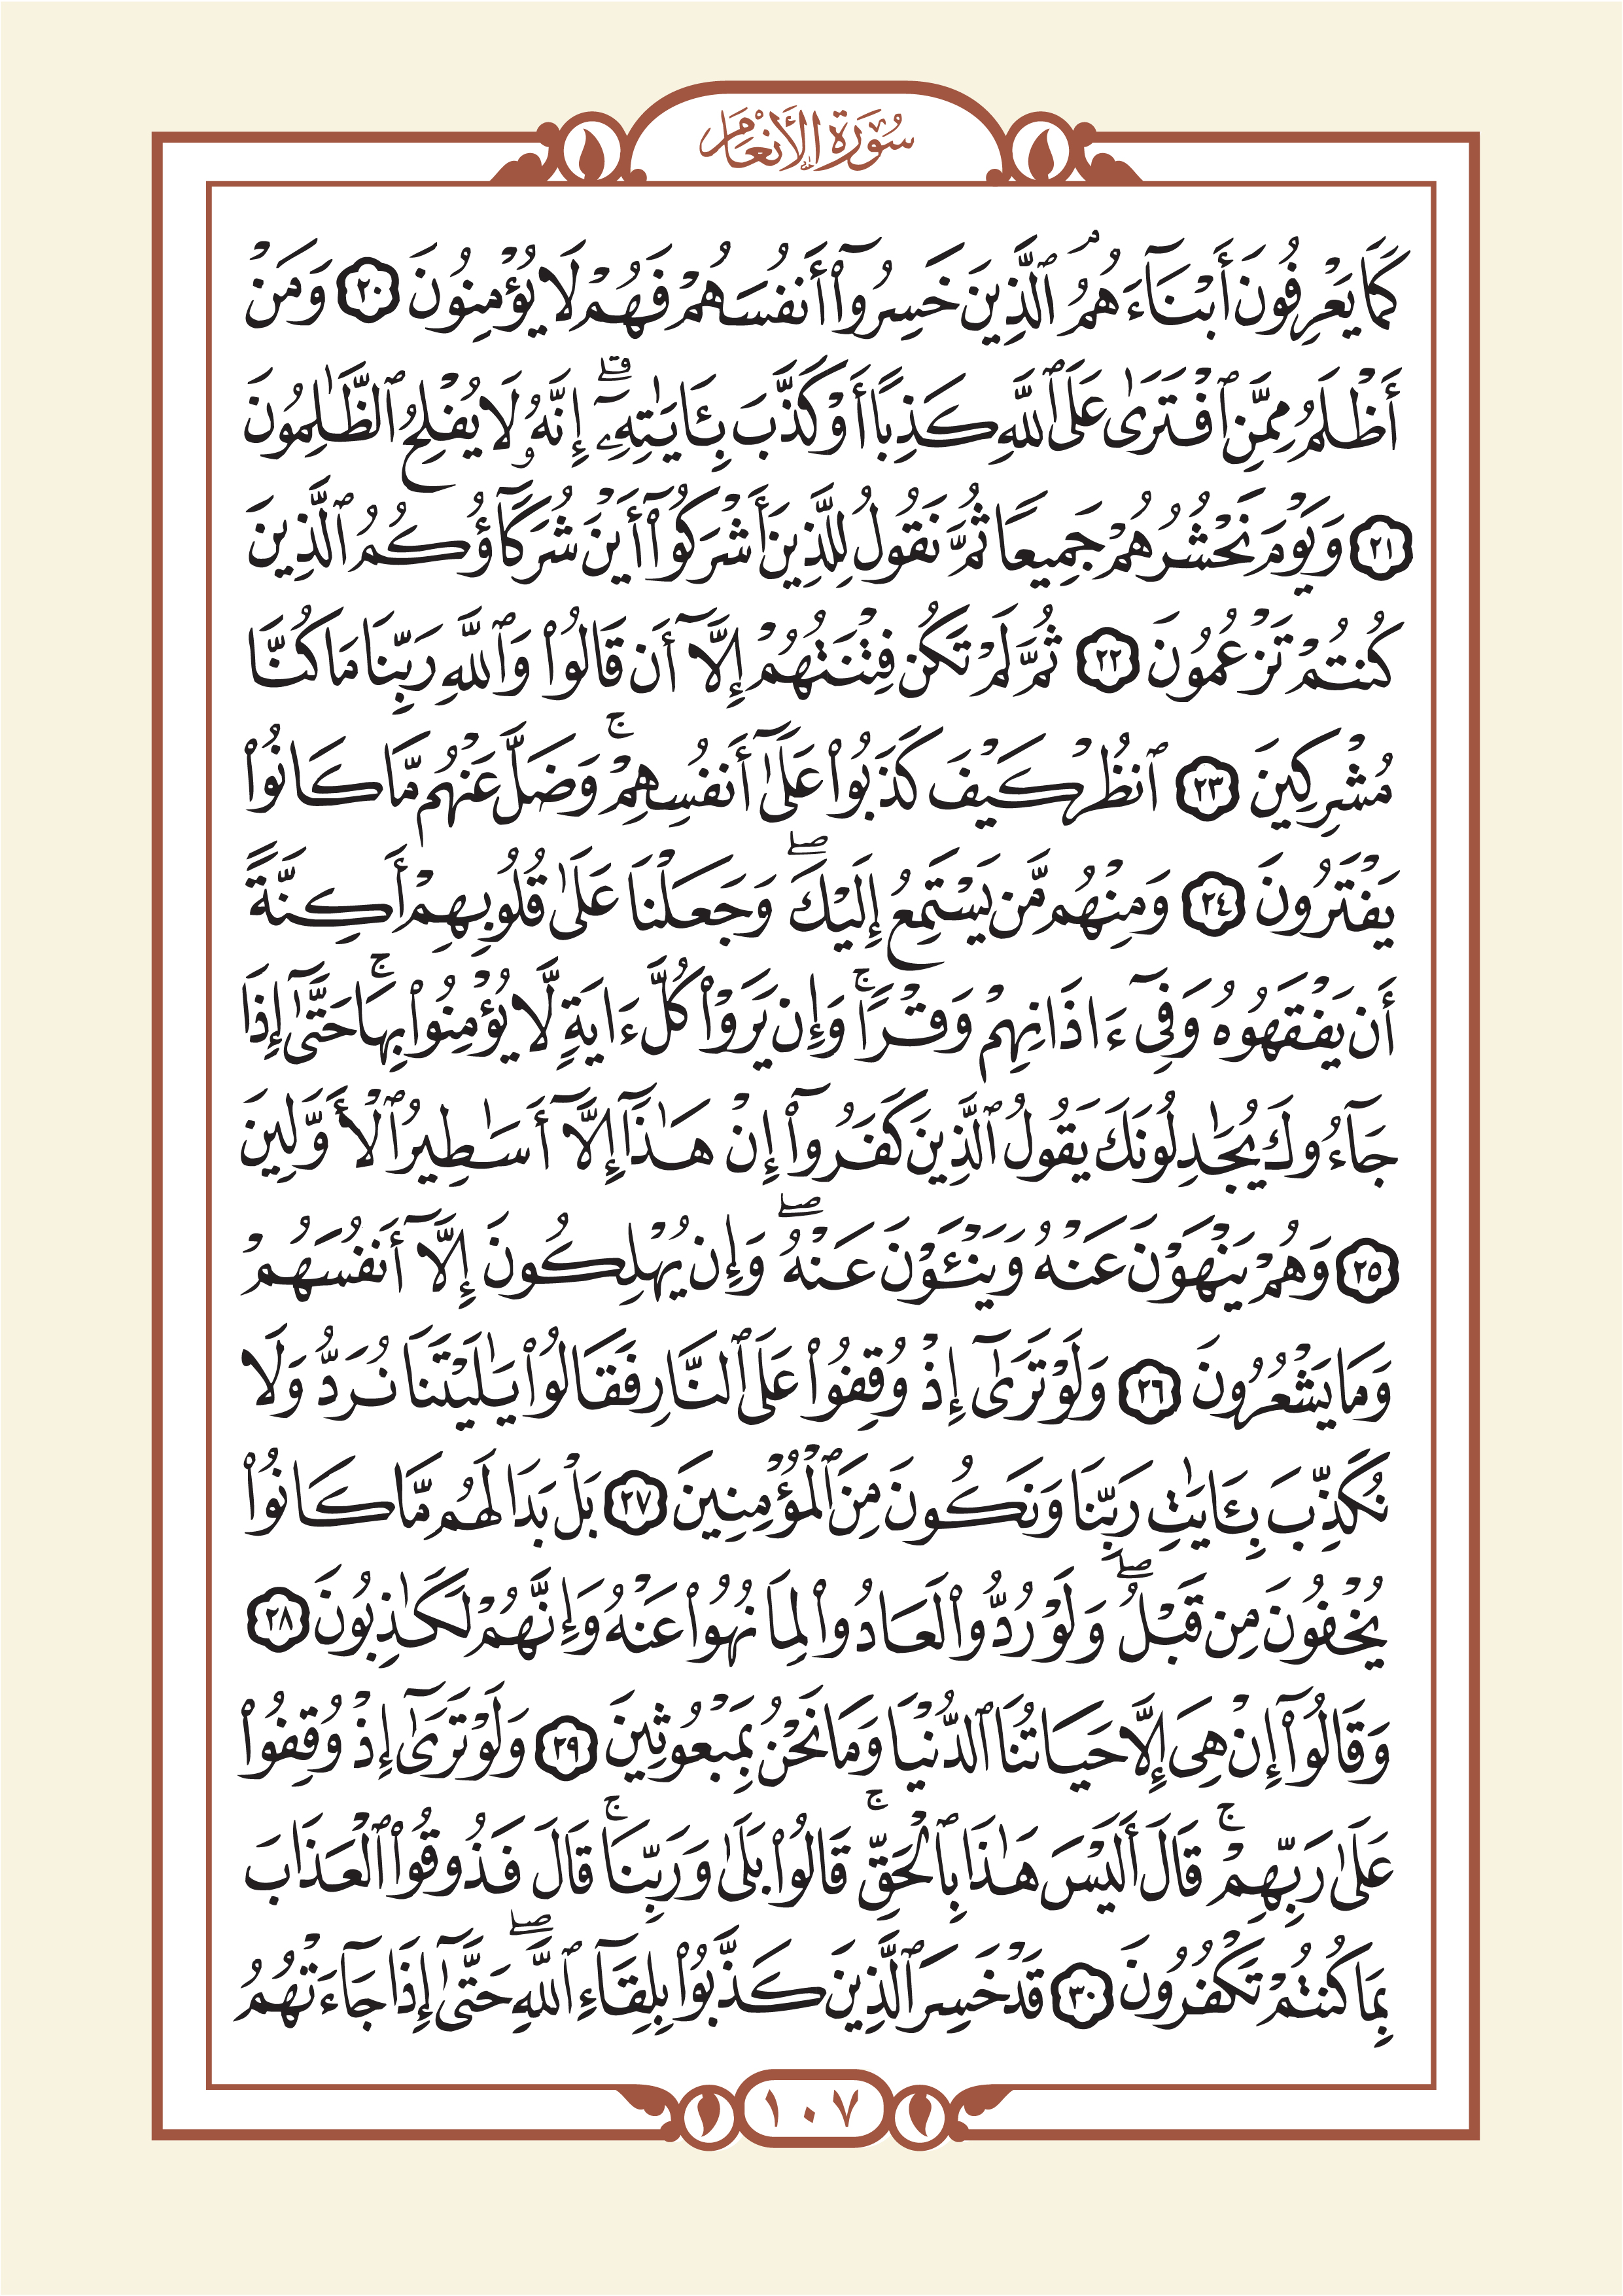 سُورَةُ الأَنْعَامِ
كَمَا يَعْرِفُونَ أَبْنَآءَهُمُ ۘ ٱلَّذِينَ خَسِرُوٓا۟ أَنفُسَهُمْ فَهُمْ لَا يُؤْمِنُونَ ٢٠ وَمَنْ
أَظْلَمُ مِمَّنِ ٱفْتَرَىٰ عَلَى ٱللَّهِ كَذِبًا أَوْ كَذَّبَ بِـَٔايَـٰتِهِۦٓ ۗ إِنَّهُۥ لَا يُفْلِحُ ٱلظَّـٰلِمُونَ
٢١ وَيَوْمَ نَحْشُرُهُمْ جَمِيعًا ثُمَّ نَقُولُ لِلَّذِينَ أَشْرَكُوٓا۟ أَيْنَ شُرَكَآؤُكُمُ ٱلَّذِينَ
كُنتُمْ تَزْعُمُونَ ٢٢ ثُمَّ لَمْ تَكُن فِتْنَتُهُمْ إِلَّآ أَن قَالُوا۟ وَٱللَّهِ رَبِّنَا مَا كُنَّا
مُشْرِكِينَ ٢٣ ٱنظُرْ كَيْفَ كَذَبُوا۟ عَلَىٰٓ أَنفُسِهِمْ ۚ وَضَلَّ عَنْهُم مَّا كَانُوا۟
يَفْتَرُونَ ٢٤ وَمِنْهُم مَّن يَسْتَمِعُ إِلَيْكَ ۖ وَجَعَلْنَا عَلَىٰ قُلُوبِهِمْ أَكِنَّةً
أَن يَفْقَهُوهُ وَفِىٓ ءَاذَانِهِمْ وَقْرًا ۚ وَإِن يَرَوْا۟ كُلَّ ءَايَةٍ لَّا يُؤْمِنُوا۟ بِهَا ۚ حَتَّىٰٓ إِذَا
جَآءُوكَ يُجَـٰدِلُونَكَ يَقُولُ ٱلَّذِينَ كَفَرُوٓا۟ إِنْ هَـٰذَآ إِلَّآ أَسَـٰطِيرُ ٱلْأَوَّلِينَ
٢٥ وَهُمْ يَنْهَوْنَ عَنْهُ وَيَنْـَٔوْنَ عَنْهُ ۖ وَإِن يُهْلِكُونَ إِلَّآ أَنفُسَهُمْ
وَمَا يَشْعُرُونَ ٢٦ وَلَوْ تَرَىٰٓ إِذْ وُقِفُوا۟ عَلَى ٱلنَّارِ فَقَالُوا۟ يَـٰلَيْتَنَا نُرَدُّ وَلَا
نُكَذِّبَ بِـَٔايَـٰتِ رَبِّنَا وَنَكُونَ مِنَ ٱلْمُؤْمِنِينَ ٢٧ بَلْ بَدَا لَهُم مَّا كَانُوا۟
يُخْفُونَ مِن قَبْلُ ۖ وَلَوْ رُدُّوا۟ لَعَادُوا۟ لِمَا نُهُوا۟ عَنْهُ وَإِنَّهُمْ لَكَـٰذِبُونَ ٢٨
وَقَالُوٓا۟ إِنْ هِىَ إِلَّا حَيَاتُنَا ٱلدُّنْيَا وَمَا نَحْنُ بِمَبْعُوثِينَ ٢٩ وَلَوْ تَرَىٰٓ إِذْ وُقِفُوا۟
عَلَىٰ رَبِّهِمْ ۚ قَالَ أَلَيْسَ هَـٰذَا بِٱلْحَقِّ ۚ قَالُوا۟ بَلَىٰ وَرَبِّنَا ۚ قَالَ فَذُوقُوا۟ ٱلْعَذَابَ
بِمَا كُنتُمْ تَكْفُرُونَ ٣٠ قَدْ خَسِرَ ٱلَّذِينَ كَذَّبُوا۟ بِلِقَآءِ ٱللَّهِ ۖ حَتَّىٰٓ إِذَا جَآءَتْهُمُ
١٠٧